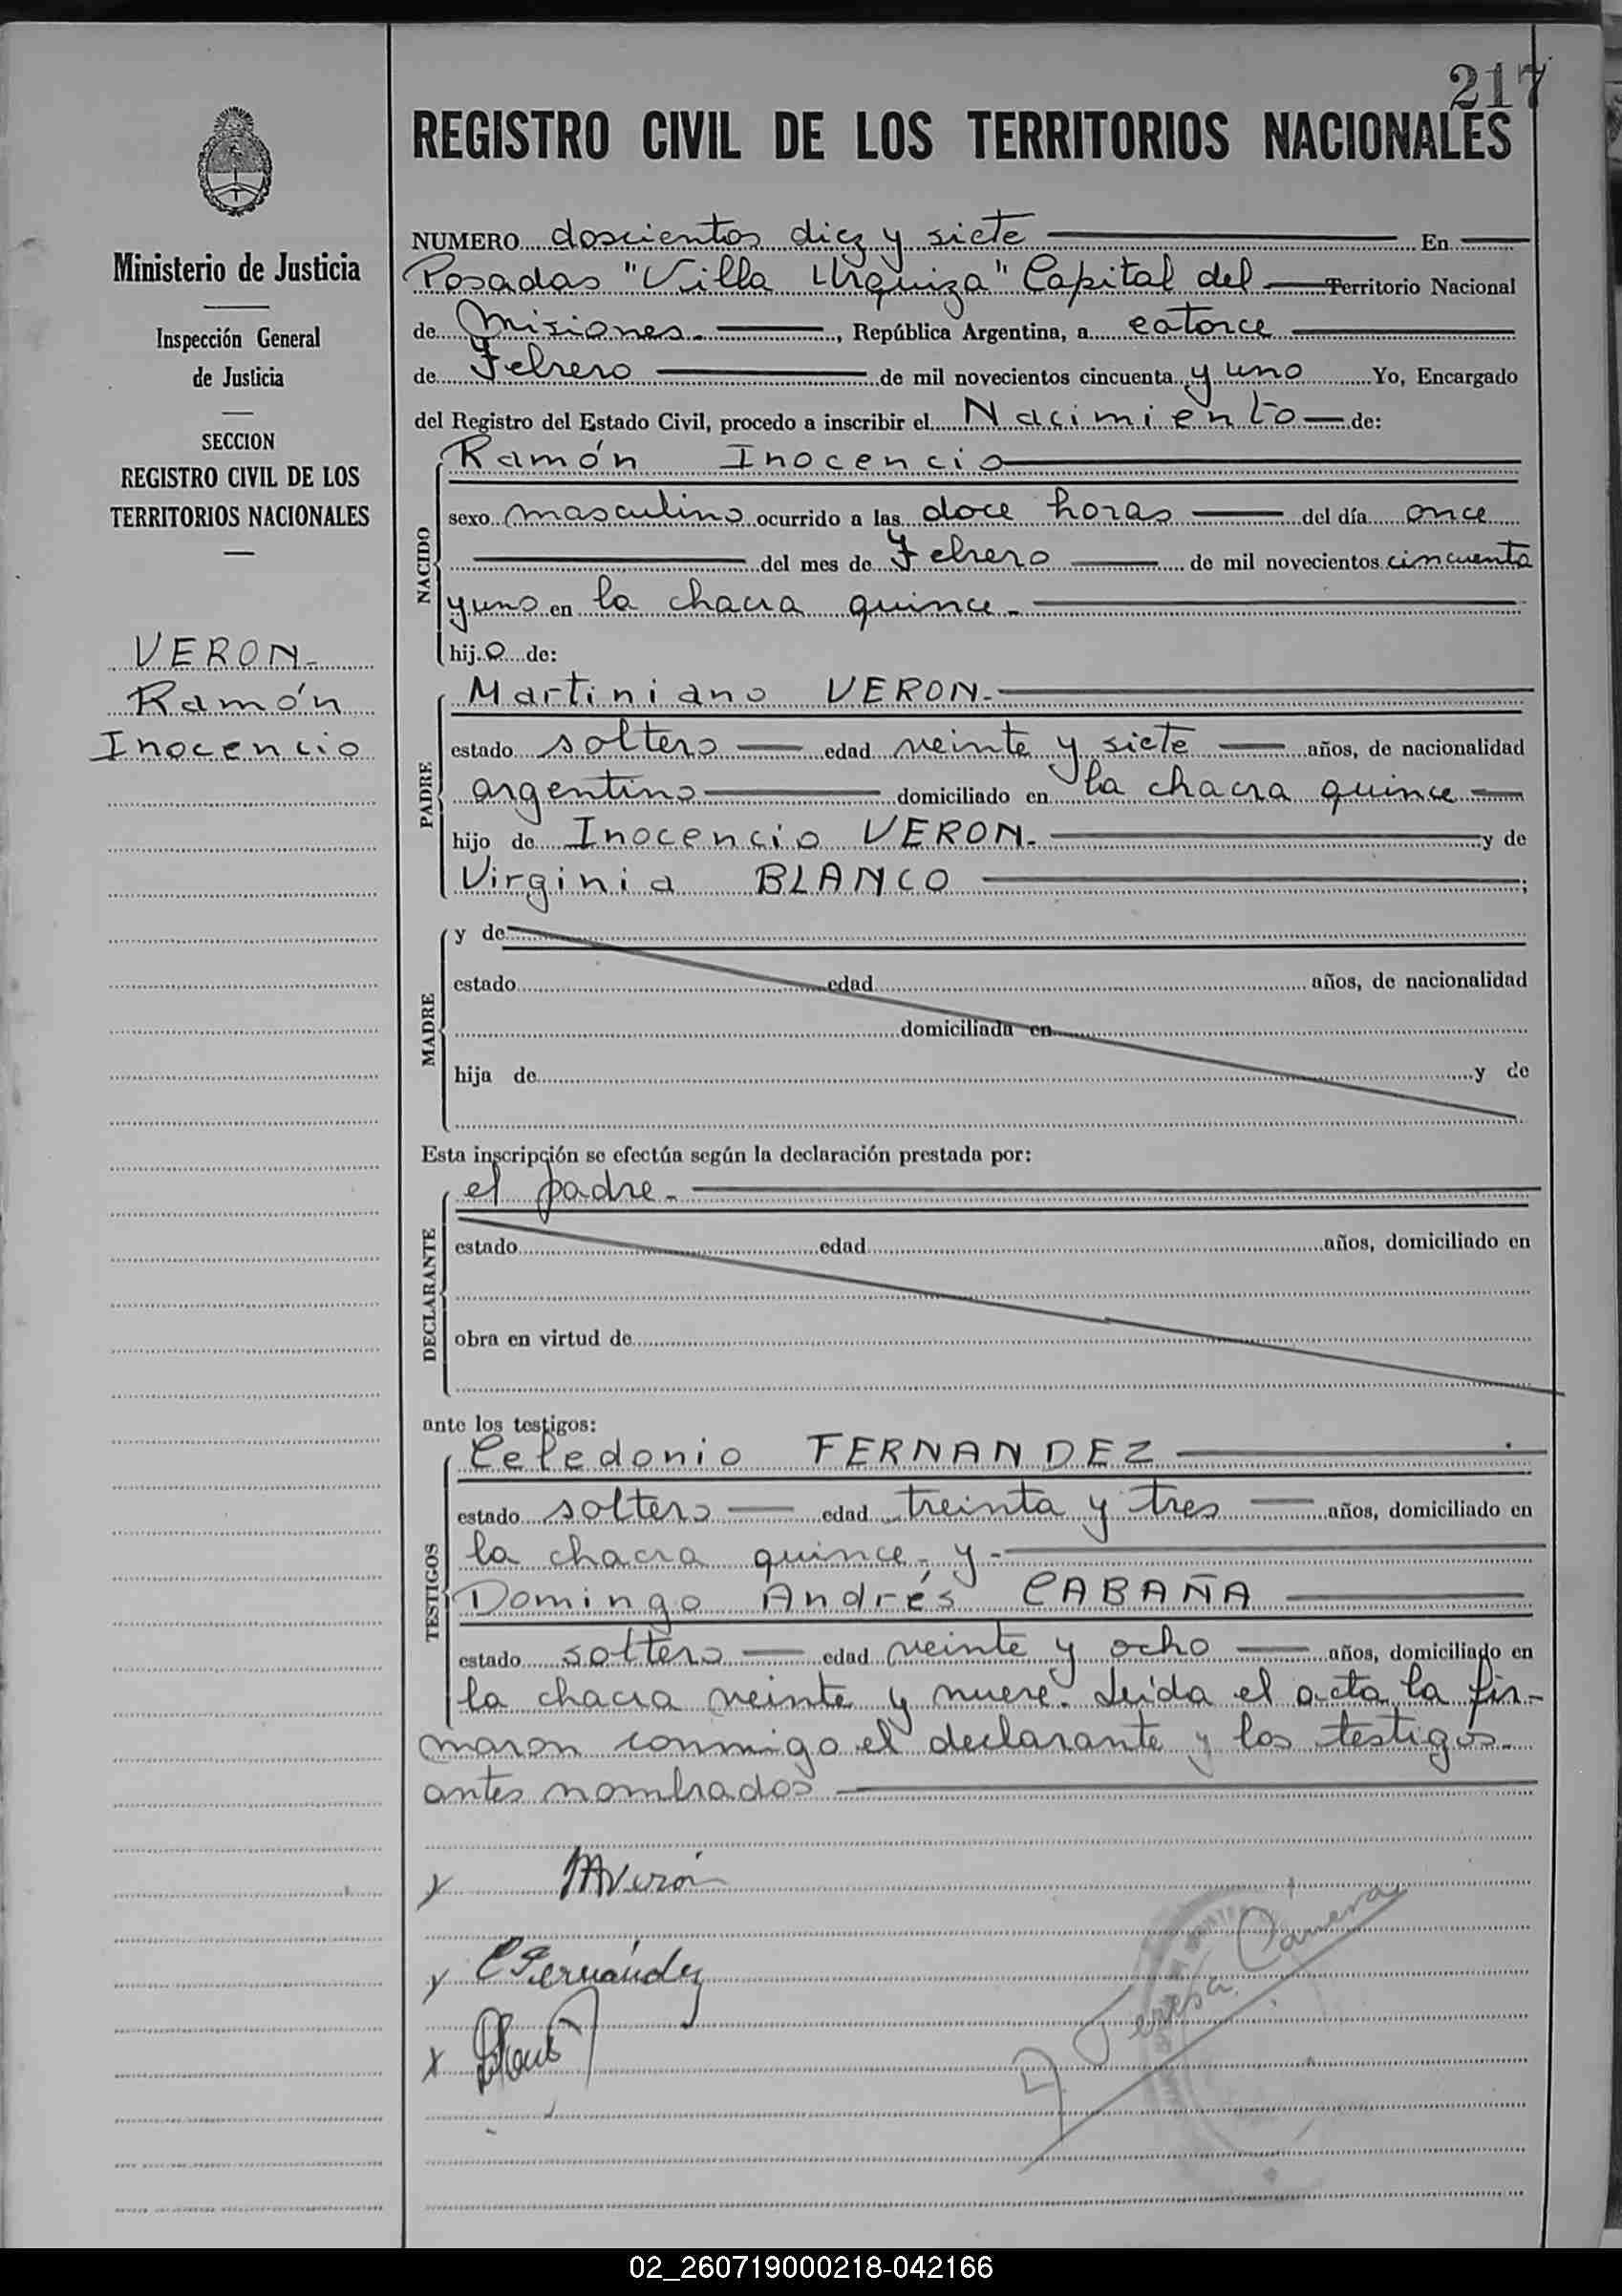 217
REGISTRO CIVIL DE LOS TERRITORIOS NACIONALES
Ministerio de Justicia
Inspección General
de Justicia
SECCION
REGISTRO CIVIL DE LOS
TERRITORIOS NACIONALES
VERON-
Ramón
Inocencio
NUMERO doscientos diez y siete En
Posadas "Villa Urquiza" Capital del Territorio Nacional
de Misiones.-, República Argentina, a catorce
de Febrero de mil novecientos cincuenta y uno Yo, Encargado
del Registro del Estado Civil, procedo a inscribir el Nacimiento de:
NACIDO
Ramón Inocencio
sexo masculino ocurrido a las doce horas del día once
del mes de Febrero de mil novecientos cincuenta
y uno en la chacra quince-
hijo de:
PADRE
Martiniano VERON-
estado soltero edad veinte y siete años, de nacionalidad
argentino domiciliado en la chacra quince
hijo de Inocencio VERON- y de
Virginia BLANCO;
MADRE
y de
estado edad años, de nacionalidad
domiciliada en
hija de y de
Esta inscripción se efectúa según la declaración prestada por:
DECLARANTE
el padre-
estado edad años, domiciliado en
obra en virtud de
ante los testigos:
TESTIGOS
Celedonio FERNANDEZ
estado soltero edad treinta y tres años, domiciliado en
la chacra quince- y-
Domingo Andrés CABAÑA
estado soltero edad veinte y ocho años, domiciliado en
la chacra veinte y nueve. Leída el acta la fir-
maron conmigo el declarante y los testigos
antes nombrados
x MVeron
x CFernández
x
Teresa
02_260719000218-042166